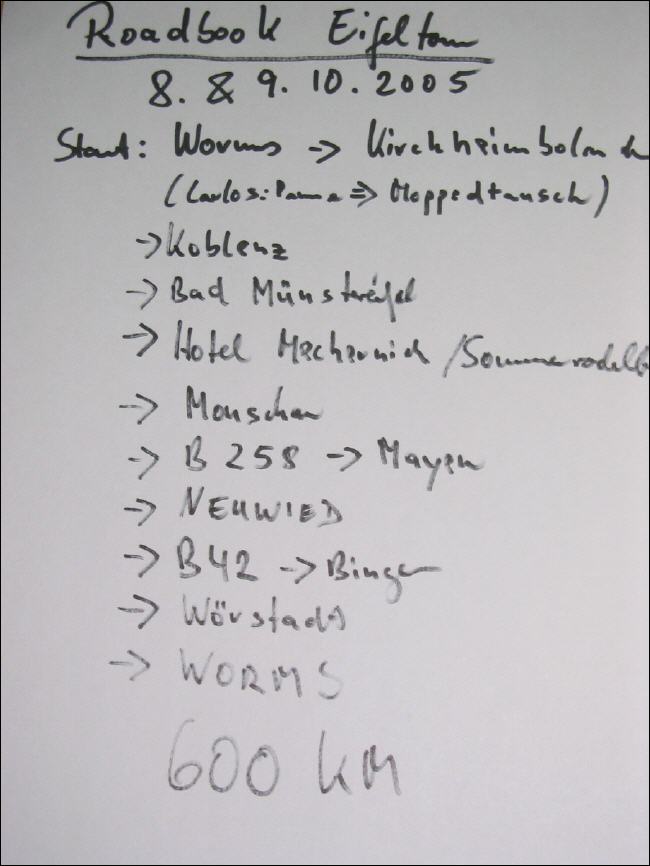 Roadbook Eifeltour
8. & 9. 10. 2005
Start: Worms -> Kirchheimboland
(Carlos: Panne => Moppedtausch)
-> Koblenz
-> Bad Münstereifel
-> Hotel Mechernich / Sommerrodelb
-> Monschau
-> B 258 -> Mayen
-> NEUWIED
-> B42 -> Bingen
-> Wörstadt
-> WORMS
600 KM